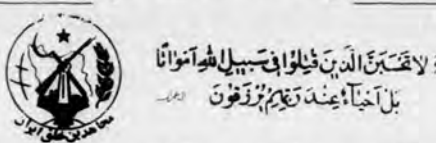 لا تَحْسَبَنَّ الَّذِينَ قُتِلُوا فِی سَبِیلِ اللهِ اَمْوٰاتًا
بَلْ اَحْیٰآءٌ عِنْدَ رَبِّهِمْ یُرْزَقُونَ
مجاهدین خلق ایران